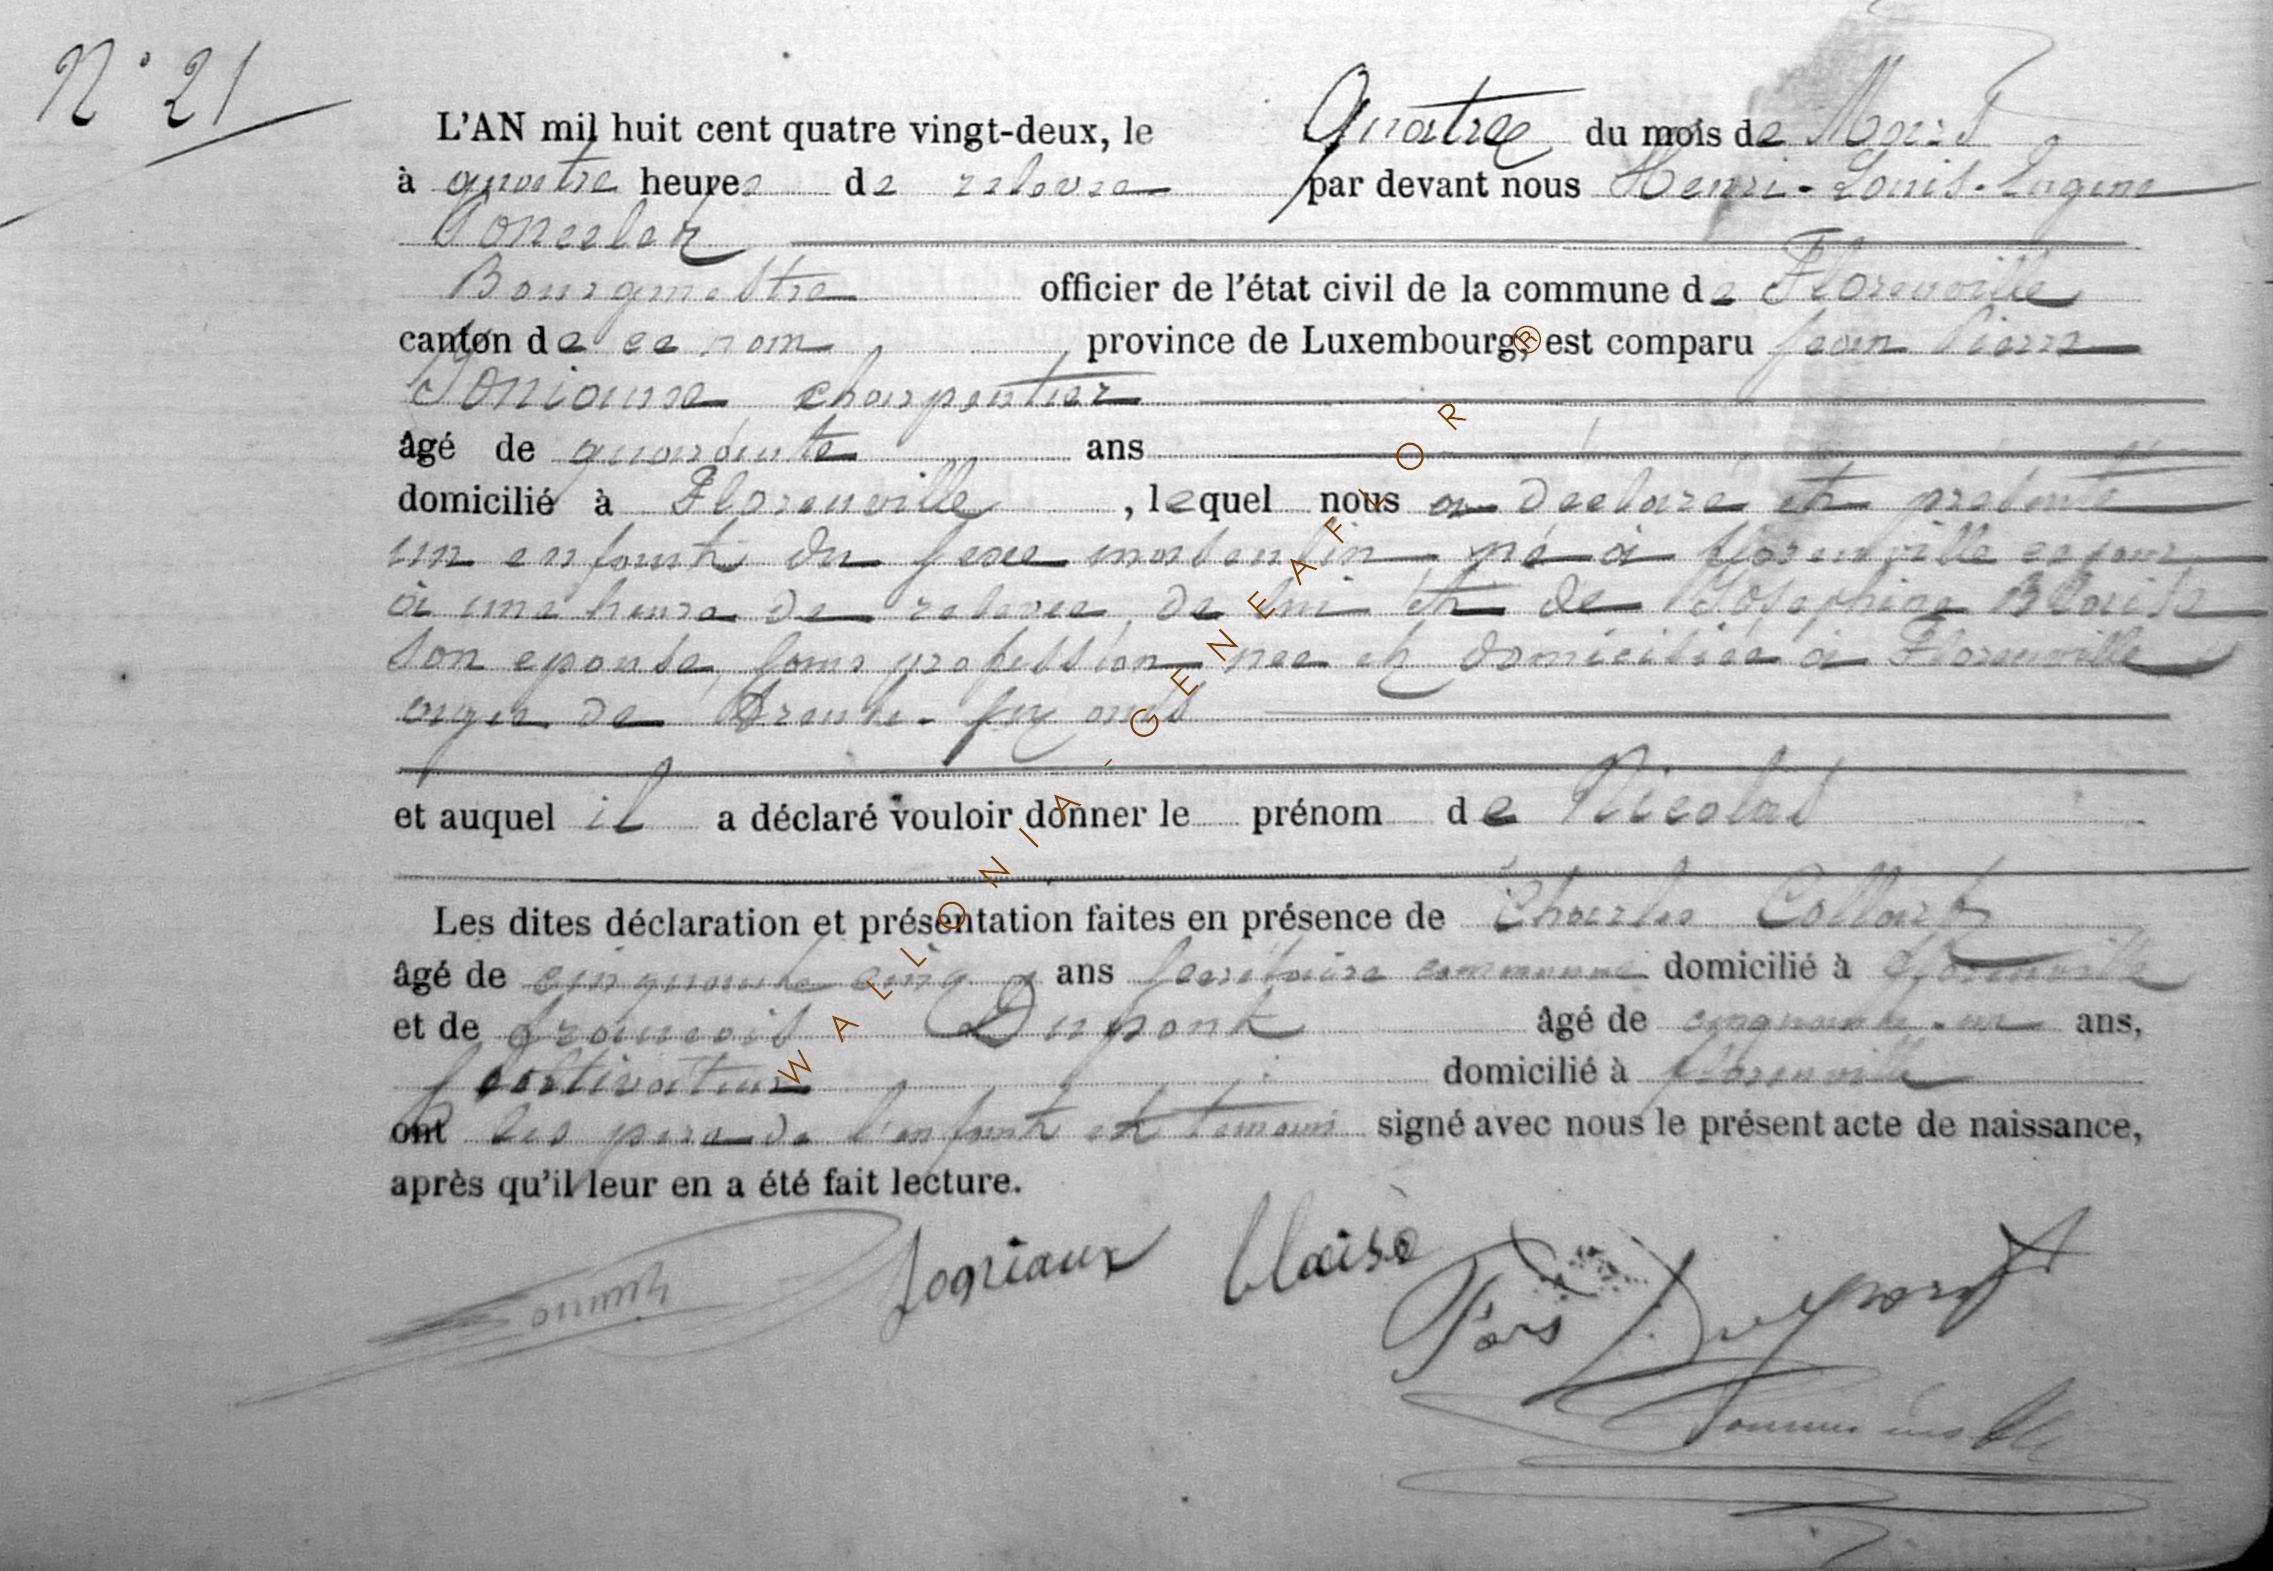 N° 21
L'AN mil huit cent quatre vingt-deux, le Quatre du mois de Mars
à quatre heures de relevée par devant nous Henri-Louis-Eugene
Bourgmestre officier de l'état civil de la commune de Florenville
canton de ce nom province de Luxembourg, est comparu Jean Pierre
charpentier
âgé de quarante ans
domicilié à Florenville, lequel nous a déclaré et présenté
un enfant du sexe masculin né à florenville ce jour
à une heure de relevée de lui et de Josephine Blaise
son epouse, sans profession née et domiciliée à Florenville
agée de trente-six ans
et auquel il a déclaré vouloir donner le prénom de Nicolas
Les dites déclaration et présentation faites en présence de Charles Collard
âgé de cinquante cinq ans secrétaire communal domicilié à florenville
et de françois Dupont âgé de cinquante-un ans,
Cultivateur domicilié à florenville
ont les pere de l'enfant et temoins signé avec nous le présent acte de naissance,
après qu'il leur en a été fait lecture.
Joniaux blaise
Fçois Dupont
WALLONIA-GENEAFLOR®